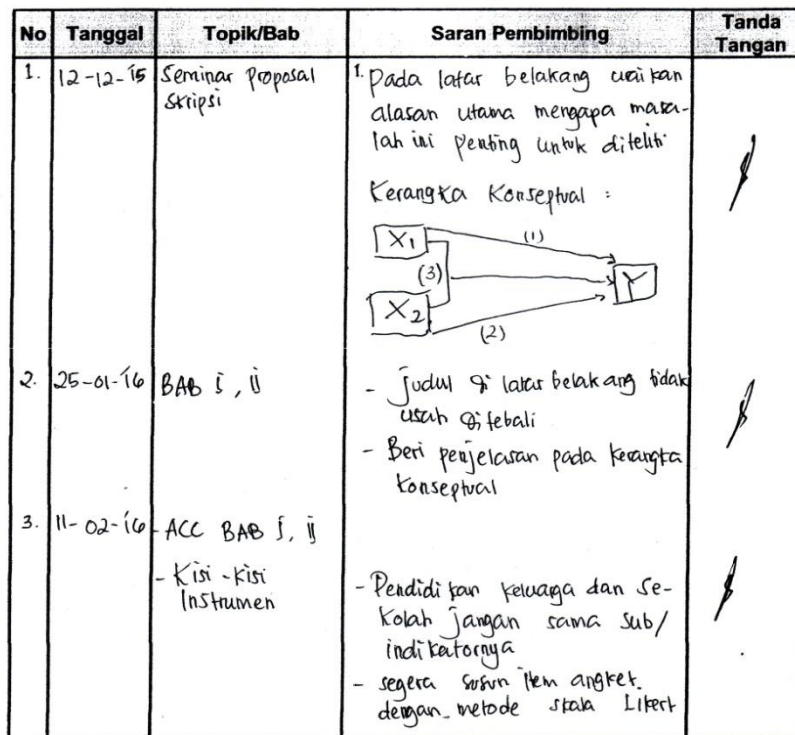 No Tanggal Topik/Bab Saran Pembimbing Tanda Tangan
1. 12-12-'15 Seminar Proposal
Skripsi
1. Pada latar belakang uraikan
alasan utama mengapa masa-
lah ini penting untuk diteliti.
Kerangka Konseptual :
X1
(1)
(3)
Y
X2
(2)
2. 25-01-'16 BAB i, ii
- Judul di latar belakang tidak
usah ditebali
- Beri penjelasan pada kerangka
konseptual
3. 11-02-'16 - ACC BAB i, ii
- Kisi-kisi
Instrumen
- Pendidikan keluaga dan Se-
kolah jangan sama sub/
indikatornya
- segera susun item angket.
dengan metode skala Likert